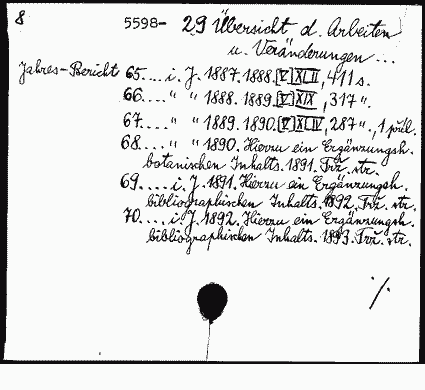 8 5598- 29 Übersicht d. Arbeiten
u. Veränderungen ...
Jahres-Bericht 65.... i. J. 1887. 1888. [V] XLII, 411 s.
66.... " " 1888. 1889. [V] XIX, 317 ".
67.... " " 1889. 1890. [V] XLIV, 287 "., 1 příl.
68.... " " 1890. Hierzu ein Ergänzungsh.
botanischen Inhalts. 1891. Trž. str.
69.... i. J. 1891. Hierzu ein Ergänzungsh.
bibliographischen Inhalts. 1892. Trž. str.
70.... i. J. 1892. Hierzu ein Ergänzungsh.
bibliographischen Inhalts. 1893. Trž. str.
./.